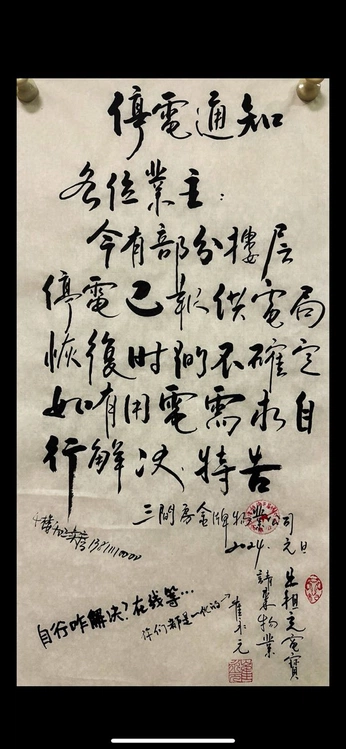 停電通知
各位業主：
今有部分樓层
停電已報供電局
恢復时间不確定
如有用電需求自
行解决.特告
三間房金牌物業公司
2024.元旦
出租充電寶
請來物業
自行咋解决？在线等…
你们都是一伙的？